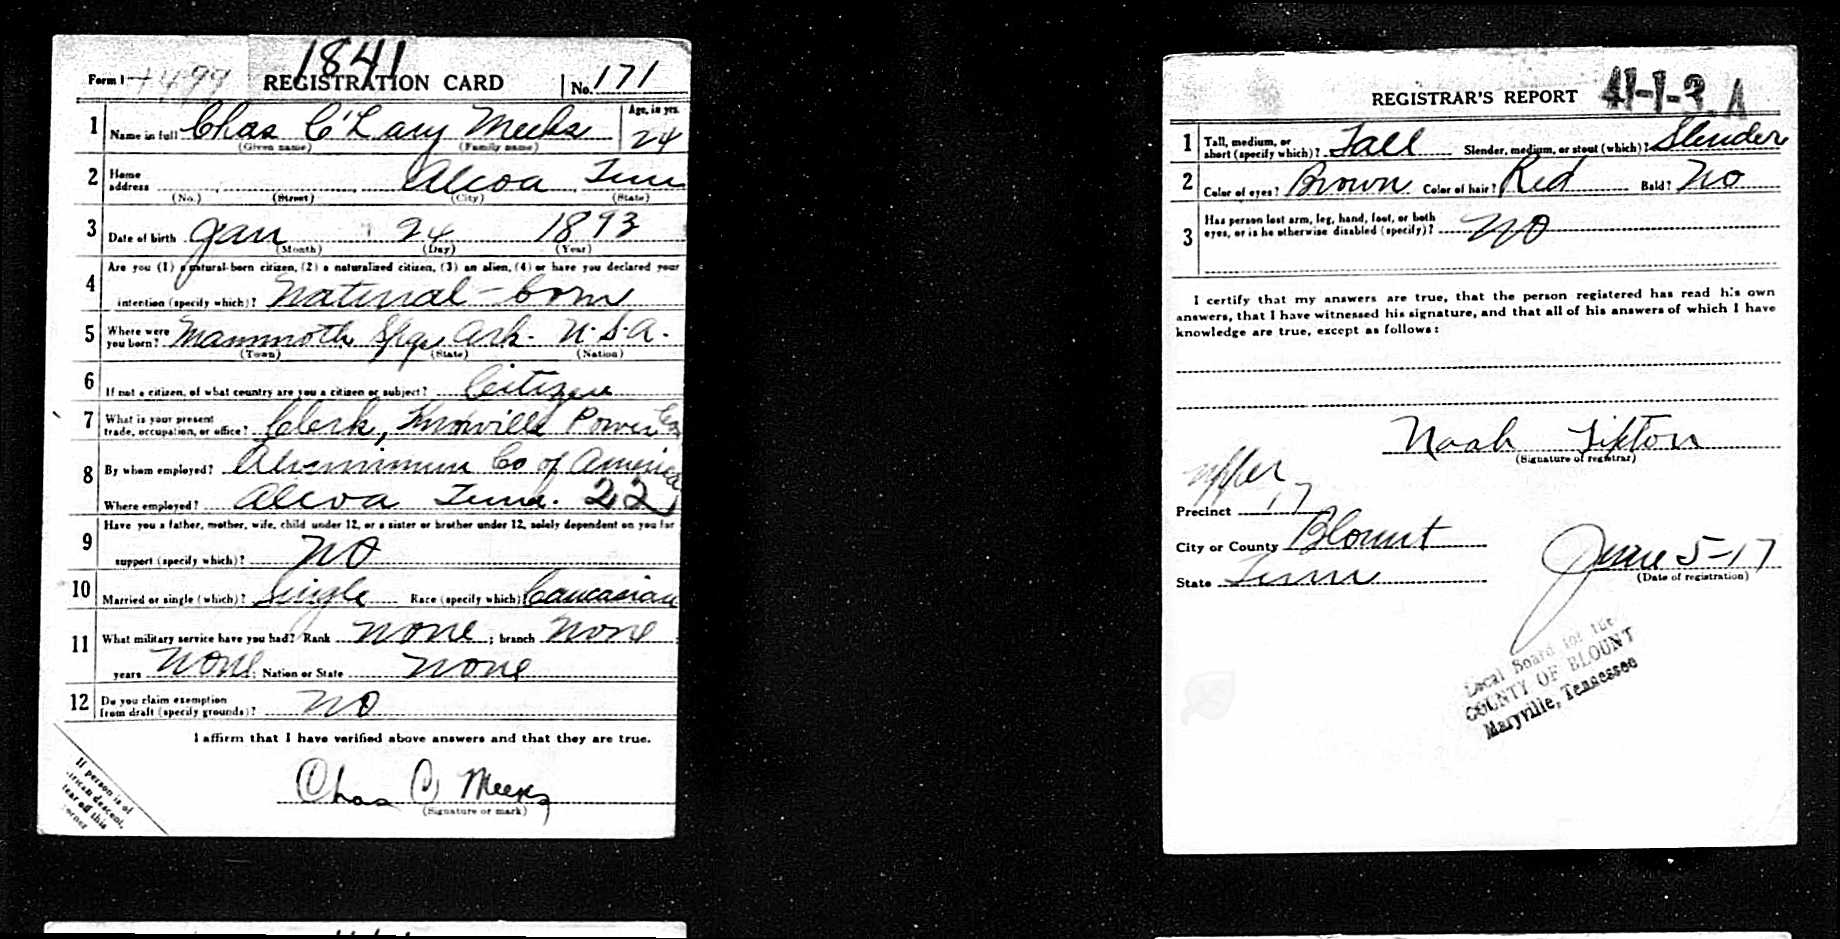 1841
Form 1 499 REGISTRATION CARD No. 171
1 Name in full Chas O'Lary Meeks Age, in yrs. 24
(Given name) (Family name)
2 Home address Alcoa Tenn
(No.) (Street) (City) (State)
3 Date of birth Jan 24 1893
(Month) (Day) (Year)
4 Are you (1) a natural-born citizen, (2) a naturalized citizen, (3) an alien, (4) or have you declared your
intention (specify which)? Natural-born
5 Where were you born? Mammoth Spgs Ark. U.S.A.
(Town) (State) (Nation)
6 If not a citizen, of what country are you a citizen or subject? Citizen
7 What is your present trade, occupation, or office? Clerk, Knoxville Power Co
8 By whom employed? Aluminum Co of America
Where employed? Alcoa Tenn. 22
9 Have you a father, mother, wife, child under 12, or a sister or brother under 12, solely dependent on you for
support (specify which)? No
10 Married or single (which)? Single Race (specify which)? Caucasian
11 What military service have you had? Rank None ; branch None
years None ; Nation or State None
12 Do you claim exemption from draft (specify grounds)? No
I affirm that I have verified above answers and that they are true.
Chas O Meeks
(Signature or mark)
If person is of
African descent,
tear off this
corner
REGISTRAR'S REPORT 41-1-3. A
1 Tall, medium, or short (specify which)? Tall Slender, medium, or stout (which)? Slender
2 Color of eyes? Brown Color of hair? Red Bald? No
3 Has person lost arm, leg, hand, foot, or both eyes, or is he otherwise disabled (specify)? No
I certify that my answers are true, that the person registered has read his own
answers, that I have witnessed his signature, and that all of his answers of which I have
knowledge are true, except as follows:
Noah Tipton
(Signature of registrar)
Upper
Precinct 17
City or County Blount
State Tenn
June 5-17
(Date of registration)
Local Board for the
COUNTY OF BLOUNT
Maryville, Tennessee